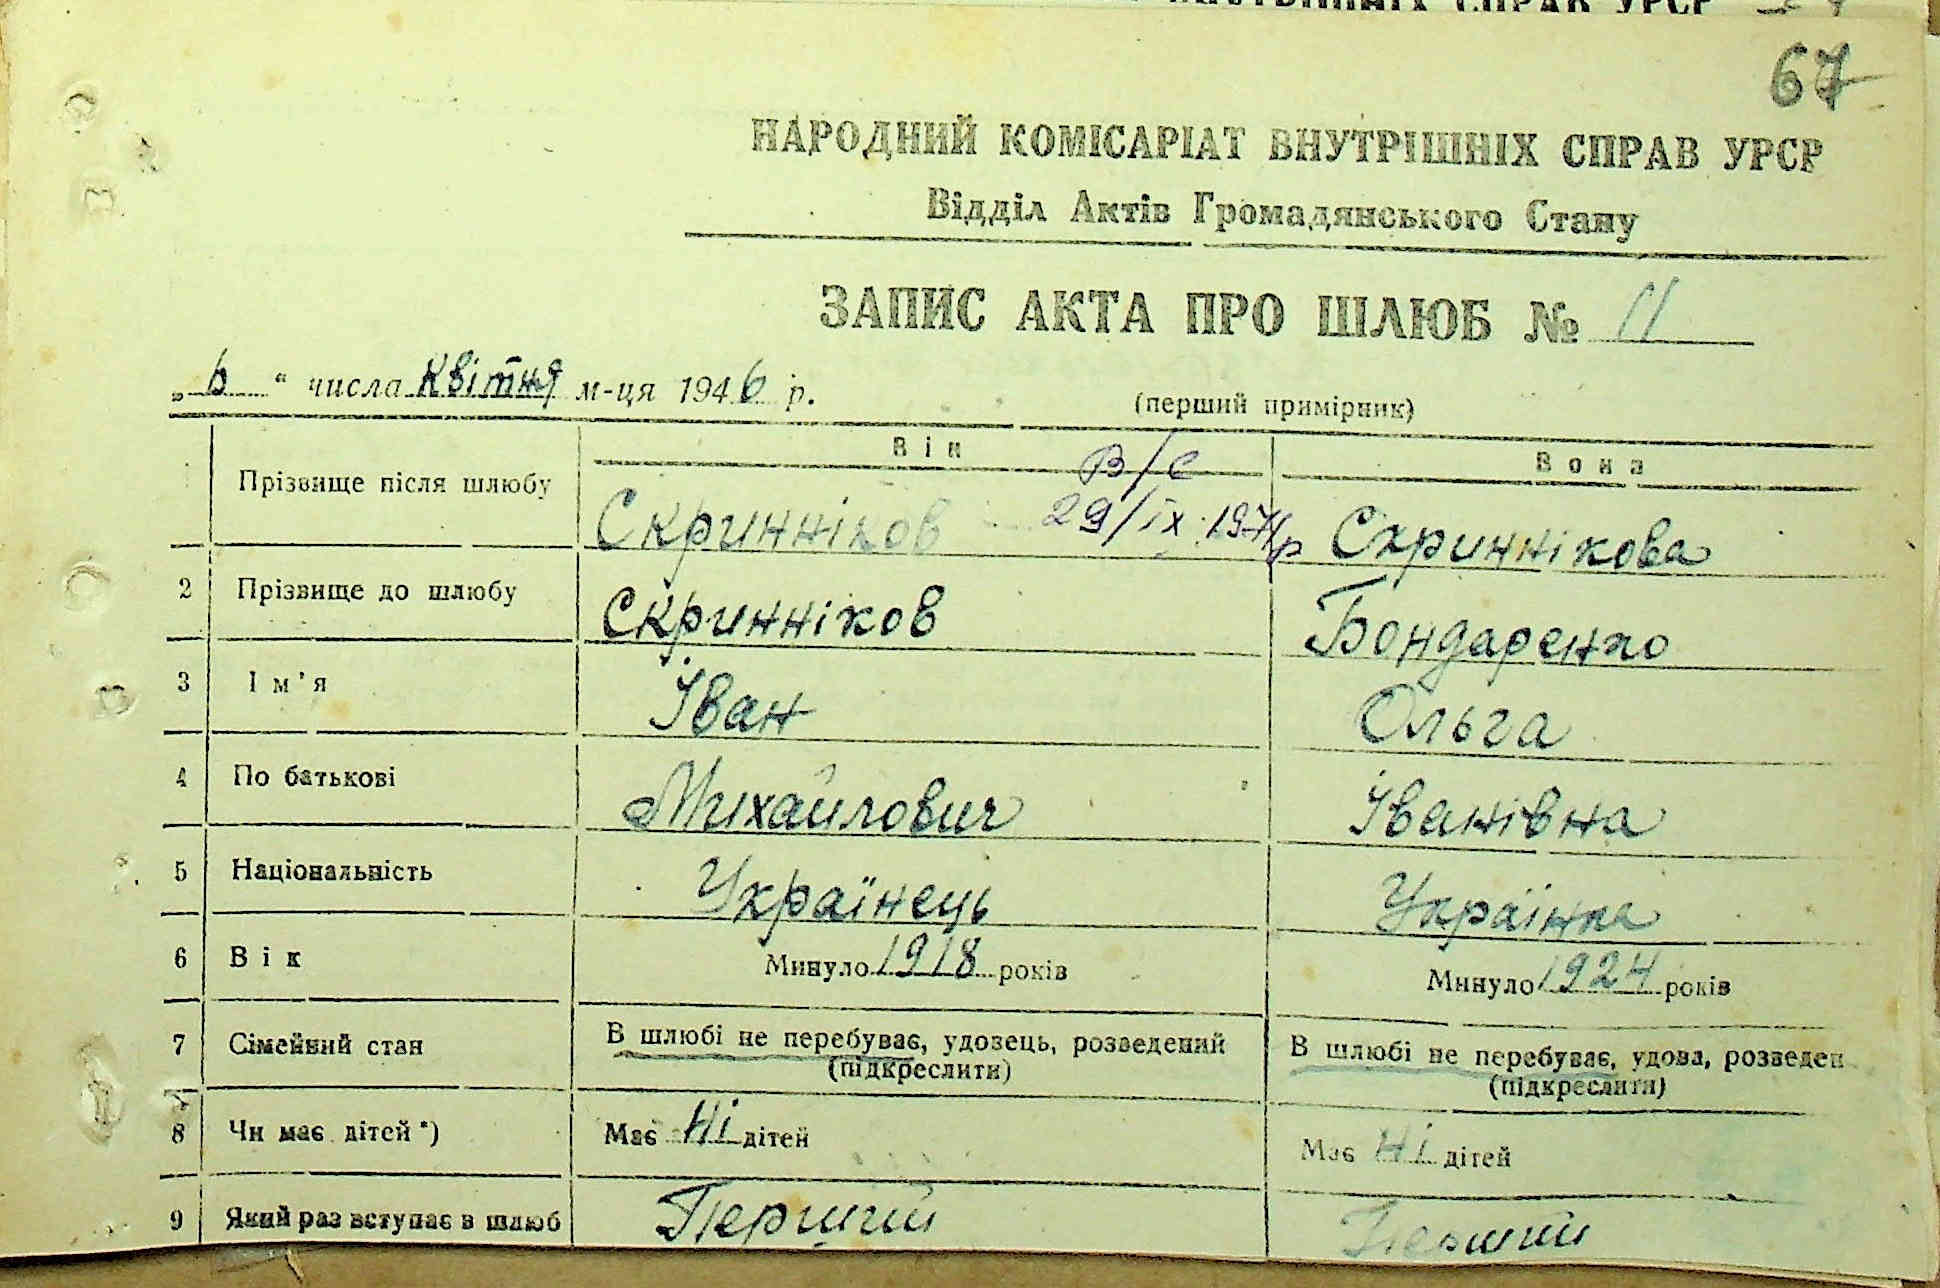 СПРАВ УРСР
67
НАРОДНИЙ КОМІСАРІАТ ВНУТРІШНІХ СПРАВ УРСР
Відділ Актів Громадянського Стану
ЗАПИС АКТА ПРО ШЛЮБ № 11
„ 6 “ числа квітня м-ця 1946 р.
(перший примірник)
Він Вона
В/с
Прізвище після шлюбу Скринніков 29/ІХ 1971р Скриннікова
2 Прізвище до шлюбу Скринніков Бондаренко
3 Ім'я Іван Ольга
4 По батькові Михайлович Іванівна
5 Національність Українець Українка
6 Вік Минуло 1918 років Минуло 1924 років
7 Сімейний стан В шлюбі не перебуває, удовець, розведений В шлюбі не перебуває, удова, розведен
(підкреслити) (підкреслити)
8 Чи має дітей*) Має Ні дітей Має Ні дітей
9 Який раз вступає в шлюб Перший Перший